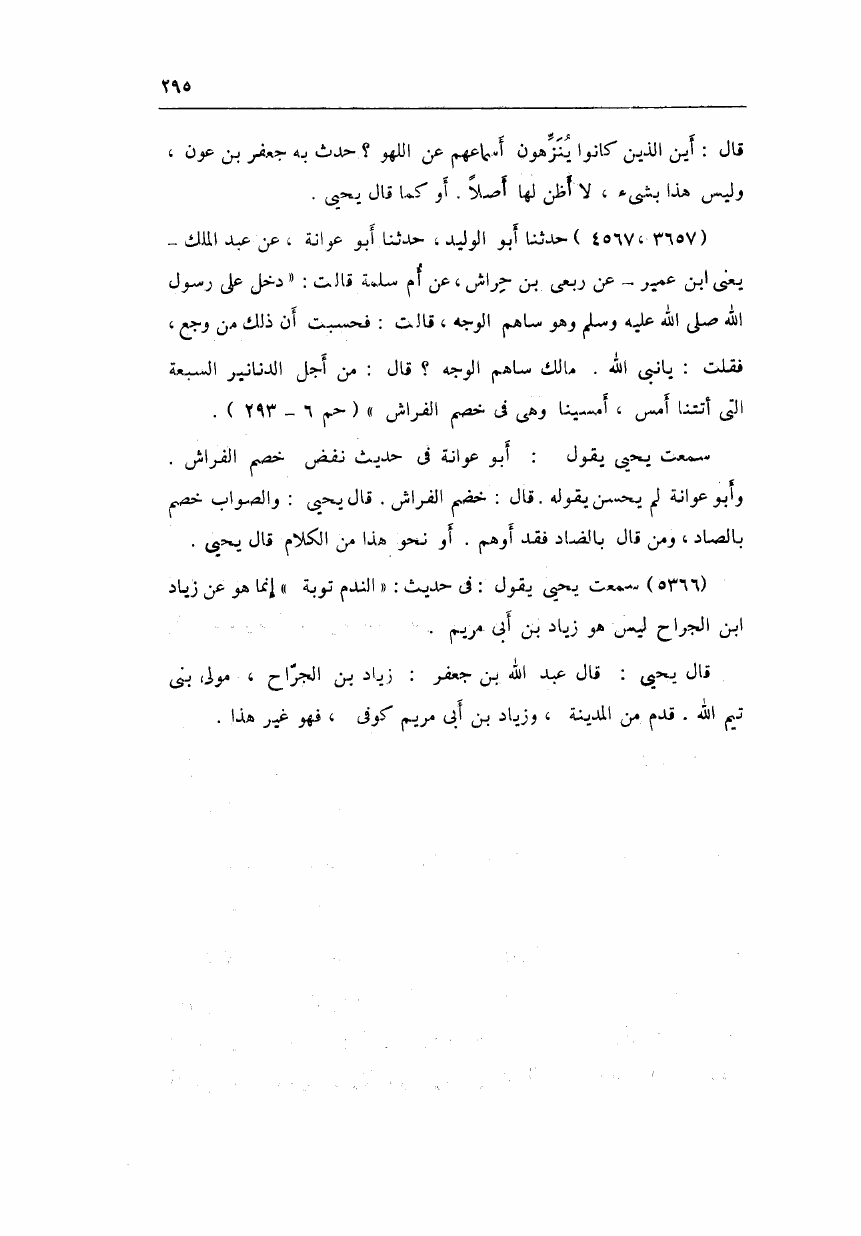 ٢٩٥
قال : أين الذين كانوا يُنَزِّهون أسماعهم عن اللهو ؟ حدث به جعفر بن عون ،
وليس هذا بشىء ، لا أظن لها أصلاً . أو كما قال يحيى .
(٣٦٥٧ ، ٤٥٦٧ ) حدثنا أبو الوليد ، حدثنا أبو عوانة ، عن عبد الملك –
يعنى ابن عمير – عن ربعى بن حِراش ، عن أُم سلمة قالت : « دخل على رسول
الله صلى الله عليه وسلم وهو ساهم الوجه ، قالت : فحسبت أن ذلك من وجع ،
فقلت : يانبى الله . مالك ساهم الوجه ؟ قال : من أجل الدنانير السبعة
التى أتتنا أمس ، أمسينا وهى فى خصم الفراش » ( حم ٦ – ٢٩٣ ) .
سمعت يحيى يقول : أبو عوانة فى حديث نفض خصم الفراش .
وأبو عوانة لم يحسن يقوله . قال : خضم الفراش . قال يحيى : والصواب خصم
بالصاد ، ومن قال بالضاد فقد أوهم . أو نحو هذا من الكلام قال يحيى .
(٥٣٦٦) سمعت يحيى يقول : فى حديث : « الندم توبة » إنما هو عن زياد
ابن الجراح ليس هو زياد بن أبى مريم .
قال يحيى : قال عبد الله بن جعفر : زياد بن الجرّاح ، مولى بنى
تيم الله . قدم من المدينة ، وزياد بن أبى مريم كوفى ، فهو غير هذا .